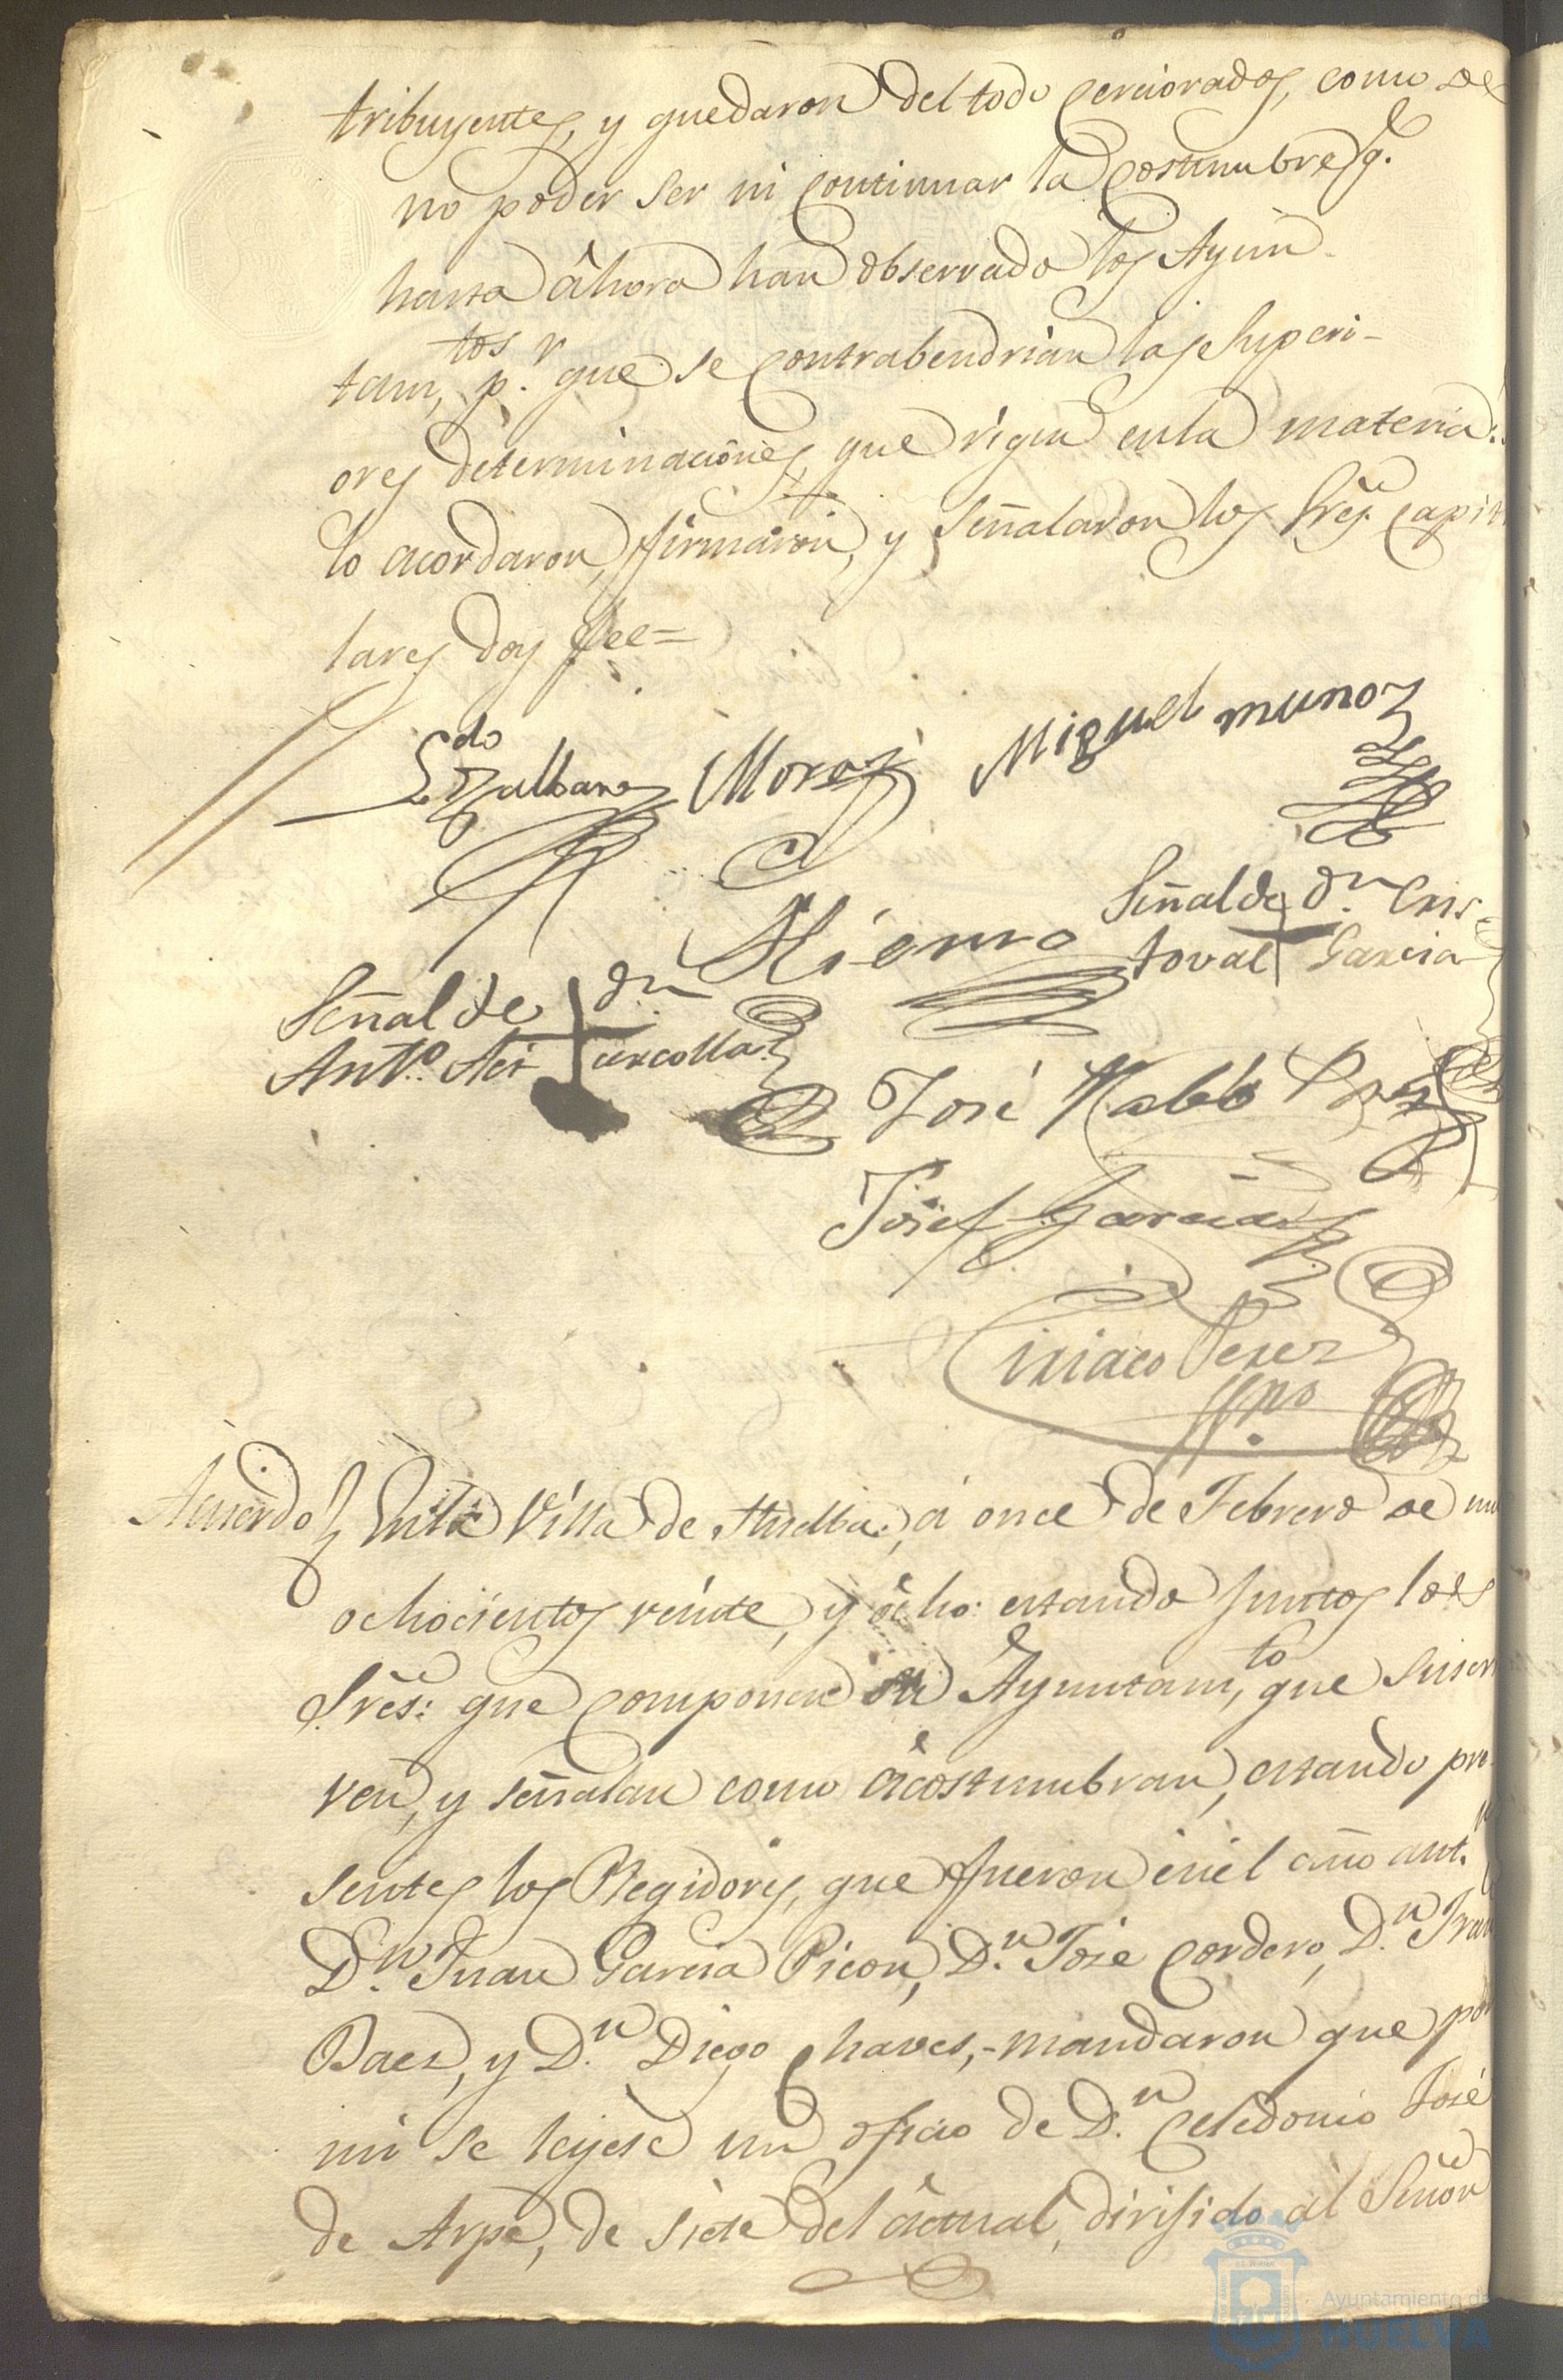 tribuyentes, y quedaron del todo cerciorados, como de
no poder ser ni continuar la costumbre q.e
hasta âhora han observado los Ayun-
tam,tos p.r que se contrabendrian las Superi-
ores determinaciônes, que rigen enla materia:
lo acordaron, firmaron, y señalaron los Sres. Capitu
lares doy fee=
Ldo Zalbane Mora Miguel munoz
Señal de dn Cris-
toval Garcia
Hierro
Señal de dn
Anto.
José
Josef Garcia
Ciriaco Perez
Acuerdo Enla Villa de Huelba, á once de Febrero de mil
ochocientos veinte, y ôcho: estando juntos los
Sres: que componen su Ayuntam,to que suscri
ven, y señalan como âcostumbran, estando pre-
sentes los Regidores, que fueron enel año ant.r
D.n Juan Garcia Picon, D.n José Cordero, D.n Fran
Baes, y D.n Diego Chaves,- mandaron que por
mi se leyese un oficio de D.n Celedonio José
de Arpe, de siete del âctual, dirijido al Señor
Ayuntamiento de
HUELVA